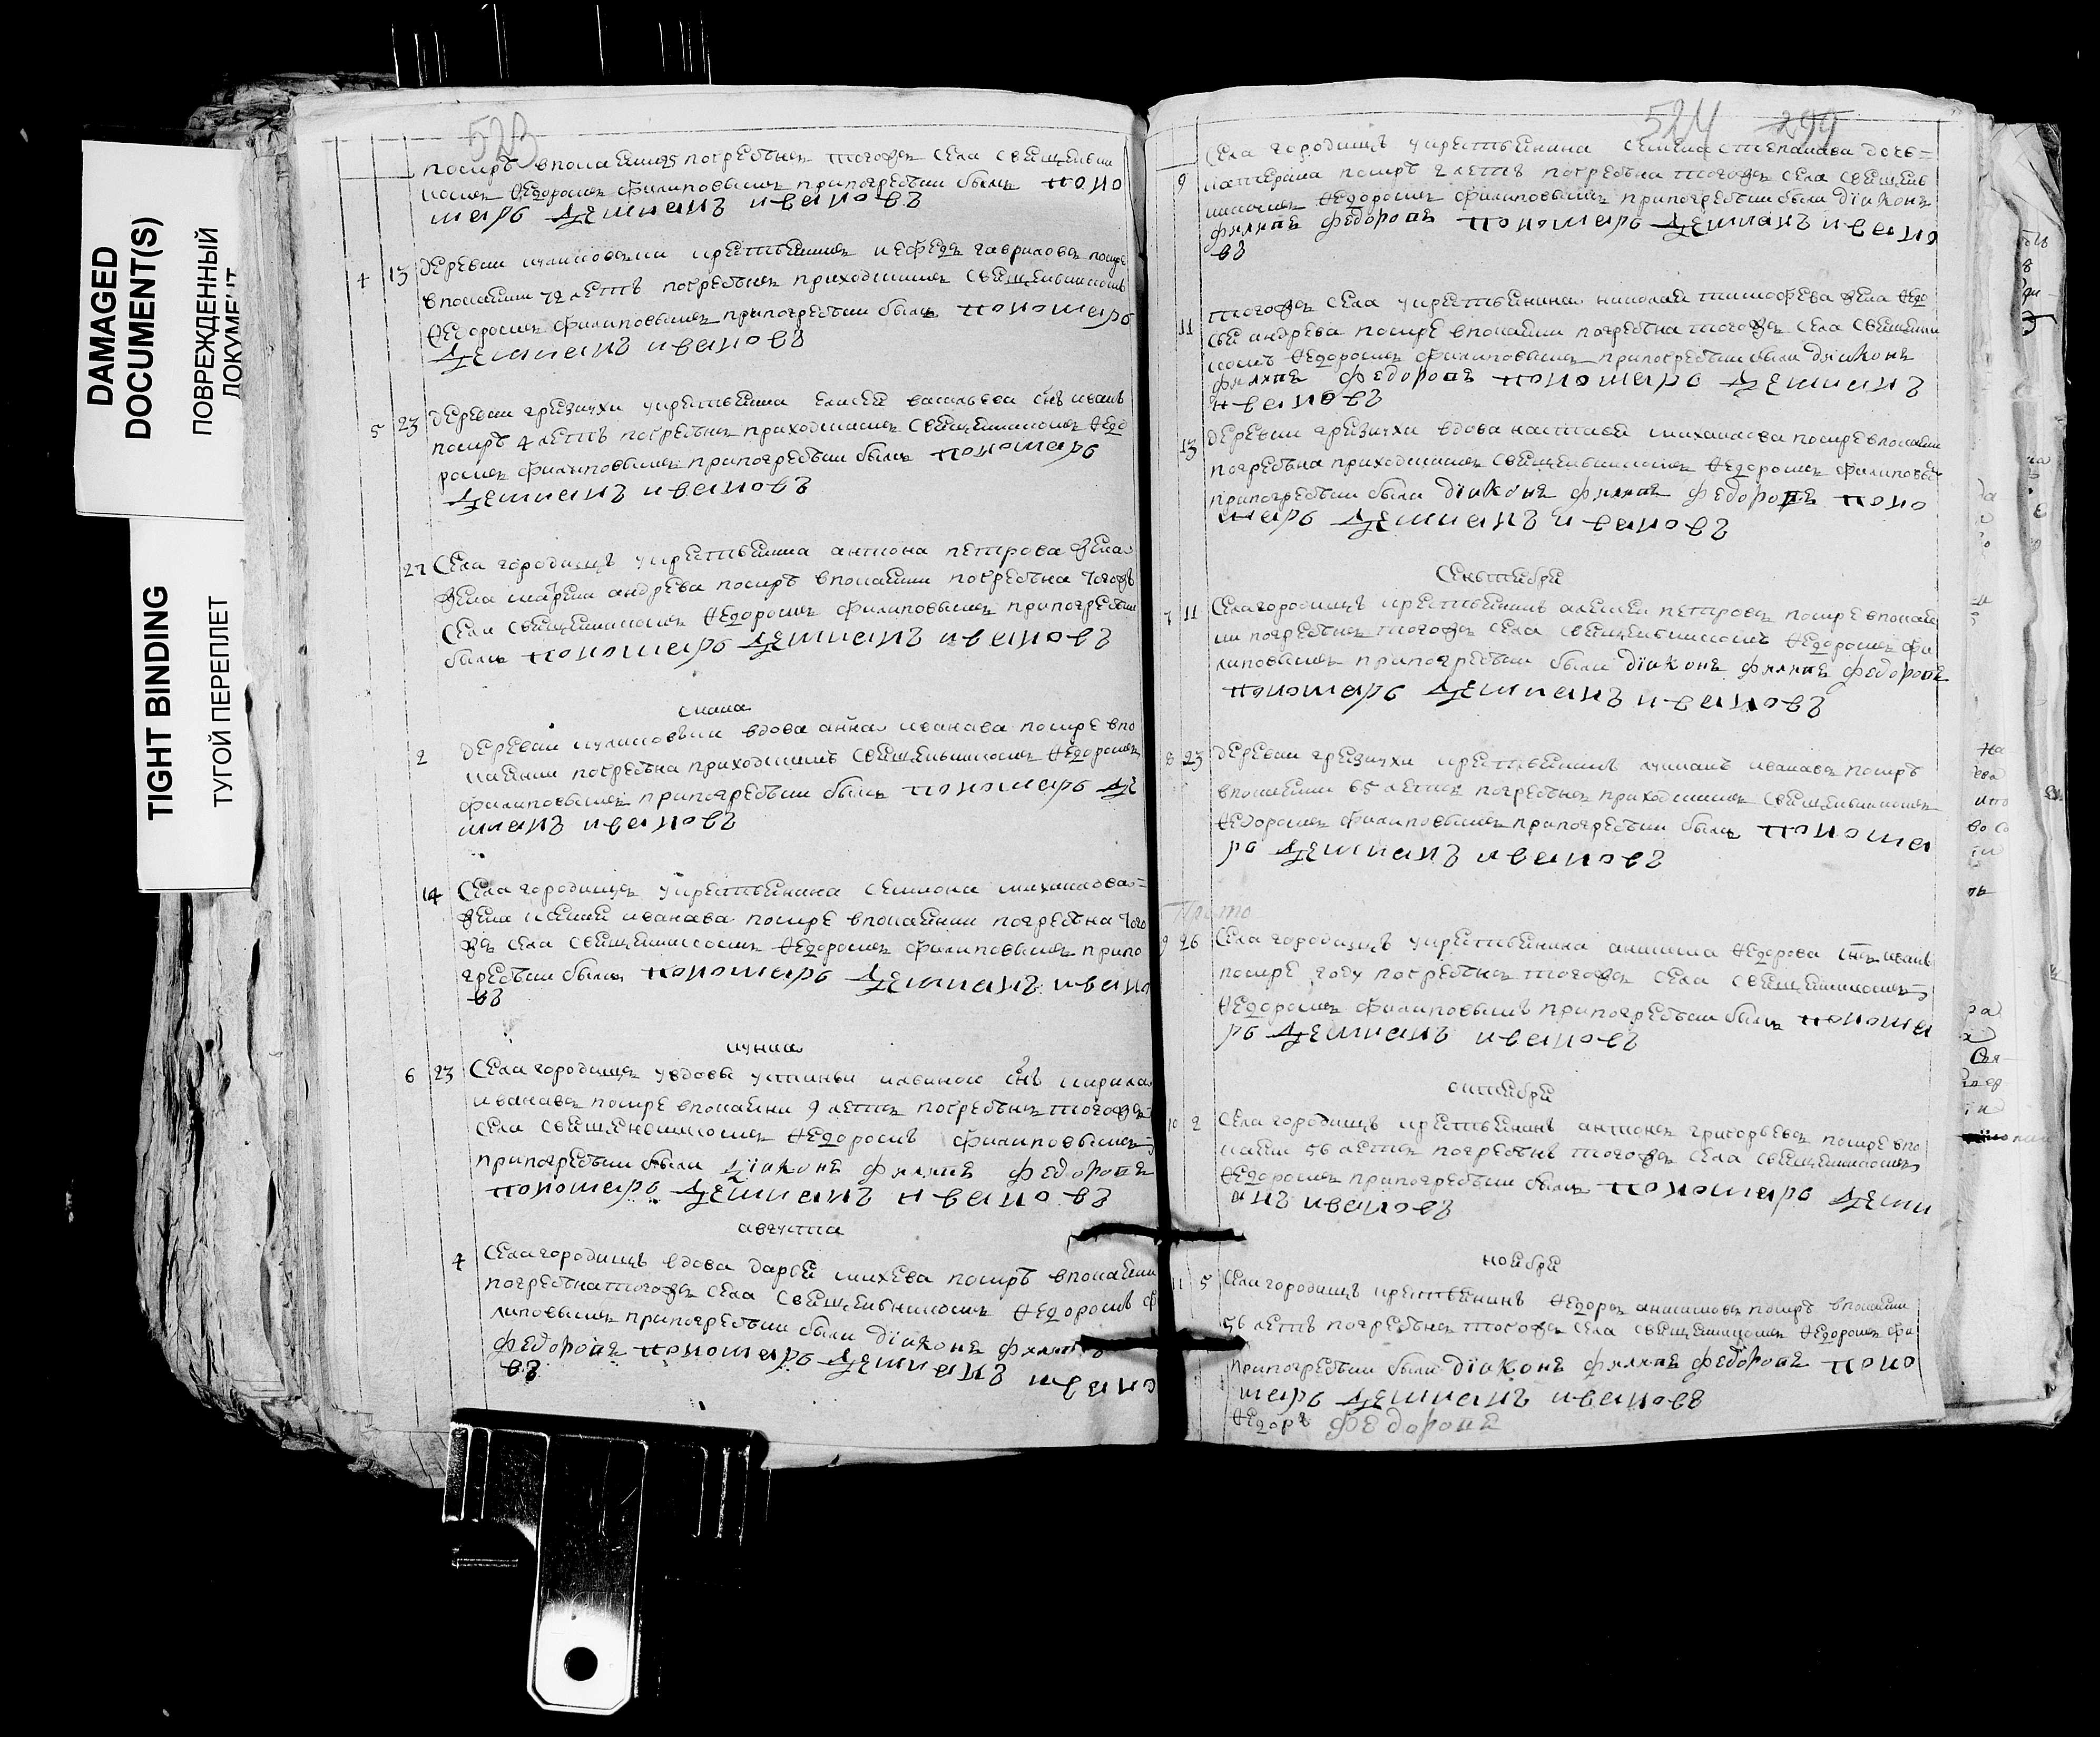 DAMAGED
DOCUMENT(S)
ПОВРЕЖДЕННЫЙ
ДОКУМЕНТ
TIGHT BINDING
ТУГОЙ ПЕРЕПЛЕТ
523
помръ впокаянии погребенъ тогожъ села священни
комъ Ѳедоромъ филиповымъ припогребѣни былъ поно
марь Демианъ ивановъ
4 13 деревни крестьянинъ нефедъ гавриловъ помре
впокаянии 72 летъ погребенъ приходскимъ священникомъ
Ѳедоромъ филиповымъ припогребѣни былъ пономарь
Демианъ ивановъ
5 23 деревни грязнухи укрестьянина елисея васильева снъ иванъ
помръ 4 летъ погребенъ приходскимъ священникомъ Ѳедо
ромъ филиповымъ припогребѣни былъ пономарь
Демианъ ивановъ
27 Села городищъ укрестьянина антона петрова жена
жена марья андрева помръ впокаянии погребена тогожъ
села священникомъ Ѳедоромъ филиповымъ припогребѣни
былъ пономарь Демианъ ивановъ
2 деревни вдова анна иванава помре впо
каянии погребена приходскимъ священникомъ Ѳедоромъ
филиповымъ припогребѣни былъ пономарь Де
мианъ ивановъ
14 Села городищъ укрестьянина семиона михаилова
жена иванава помре впокаянии погребена того
жъ села священникомъ Ѳедоромъ филиповымъ припо
гребѣни былъ пономарь Демианъ ивано
въ
иуния
6 23 Села городищъ увдовы устиньи снъ кирила
иванавъ помре впокаянии 9 летъ погребенъ тогожъ
села священникомъ Ѳедоромъ филиповымъ
припогребѣни были Диаконъ филипъ федоровъ
пономарь Демианъ ивановъ
августа
4 Села городищъ вдова дарья михева помръ впокаянии
погребена тогожъ села священникомъ Ѳедоромъ фи
липовымъ припогребѣни были диаконъ филипъ
федоровъ пономарь Демианъ ивано
въ
524 299
Села городищъ укрестьянина семена степанава дочь
9 катерина помръ 2 летъ погребена тогожъ села священ
никомъ Ѳедоромъ филиповымъ припогребѣни были диаконъ
филипъ федоровъ пономарь Демианъ ивано
въ
тогожъ села укрестьянина николая тимофева жена Ѳедо
11 сья андрева помре впокаянии погребена тогожъ села священни
комъ Ѳедоромъ филиповымъ припогребѣни были диаконъ
филипъ федоровъ пономарь Демианъ
ивановъ
13 деревни грязнухи вдова настасья михаилова помре впокаянии
погребена приходскимъ священникомъ Ѳедоромъ филиповым
припогребѣни были диаконъ филипъ федоровъ поно
марь Демианъ ивановъ
Сеньтября
7 11 Села городищъ крестьянинъ алексеи петровъ помре впокаяни
ии погребенъ тогожъ села священникомъ Ѳедоромъ фи
липовымъ припогребѣни были диаконъ филипъ федоровъ
пономарь Демианъ ивановъ
8 23 деревни грязнухи крестьянинъ лукианъ иванавъ помръ
впокаянии 65 летъ погребенъ приходскимъ священникомъ
Ѳедоромъ филиповымъ припогребѣни былъ понома
рь Демианъ ивановъ
9 26 Села городищъ укрестьянина анисима Ѳедорова снъ иванъ
помре году погребенъ тогожъ села священникомъ
Ѳедоромъ филиповымъ припогребѣни былъ понома
рь Демианъ ивановъ
октября
10 2 Села городищъ крестьянинъ антонъ григорьевъ помре впо
каянии 56 летъ погребенъ тогожъ села священникомъ
Ѳедоромъ припогребѣни былъ пономарь Деми
анъ ивановъ
ноября
11 5 Села городищъ крестьянинъ Ѳедоръ анисимовъ помръ впокаянии
56 летъ погребенъ тогожъ села священникомъ Ѳедоромъ фи
припогребѣни были диаконъ филипъ федоровъ поно
марь Демианъ ивановъ
Ѳедоръ Федоровъ